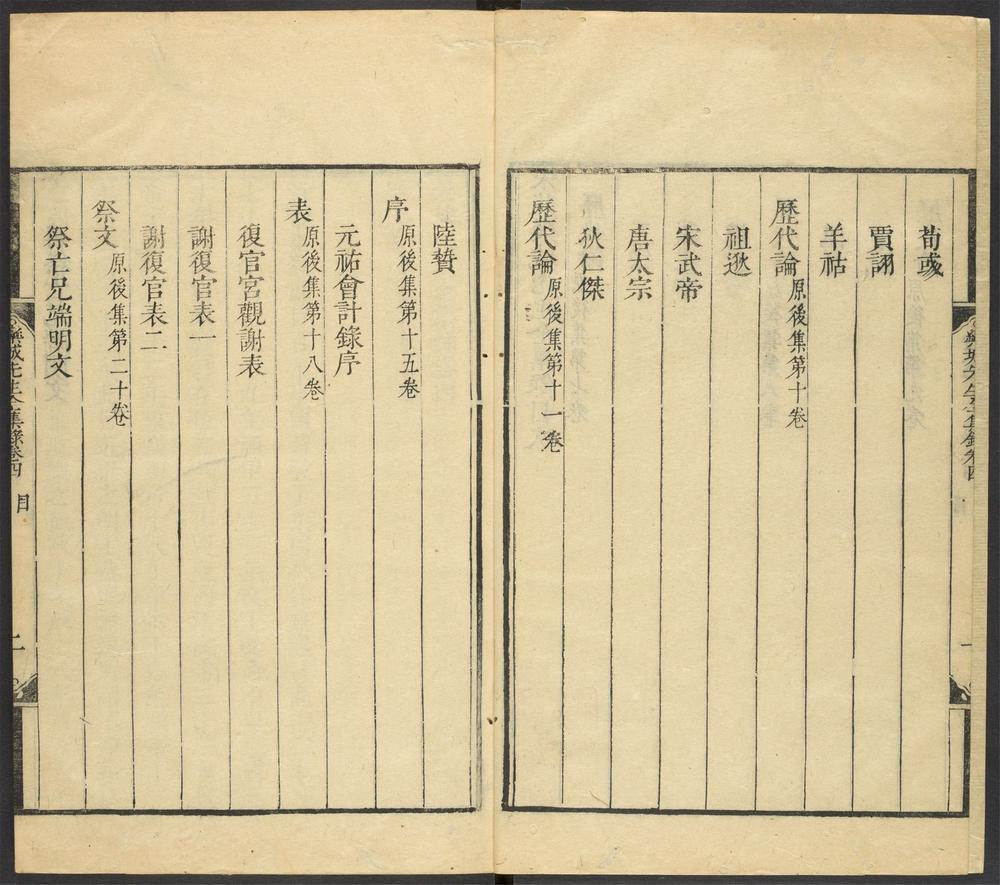 荀彧
賈詡
羊祜
歷代論 原後集第十卷
祖逖
宋武帝
唐太宗
狄仁傑
歷代論 原後集第十一卷
陸贄
序 原後集第十五卷
元祐會計錄序
表 原後集第十八卷
復官宮觀謝表
謝復官表一
謝復官表二
祭文 原後集第二十卷
祭亡兄端明文
欒城先生全集錄卷四 目